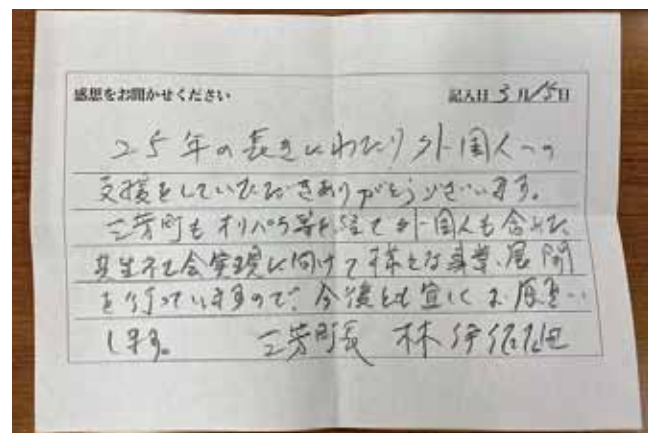 感想をお聞かせください 記入日 3月15日
25年の長きにわたり外国人への
支援をしていただきありがとうございます。
三芳町もオリパラ等を経て外国人も含めた
共生社会実現に向けて様々な事業・展開
を行っていますので、今後とも宜しくお願い
します。 三芳町長 林伊佐雄